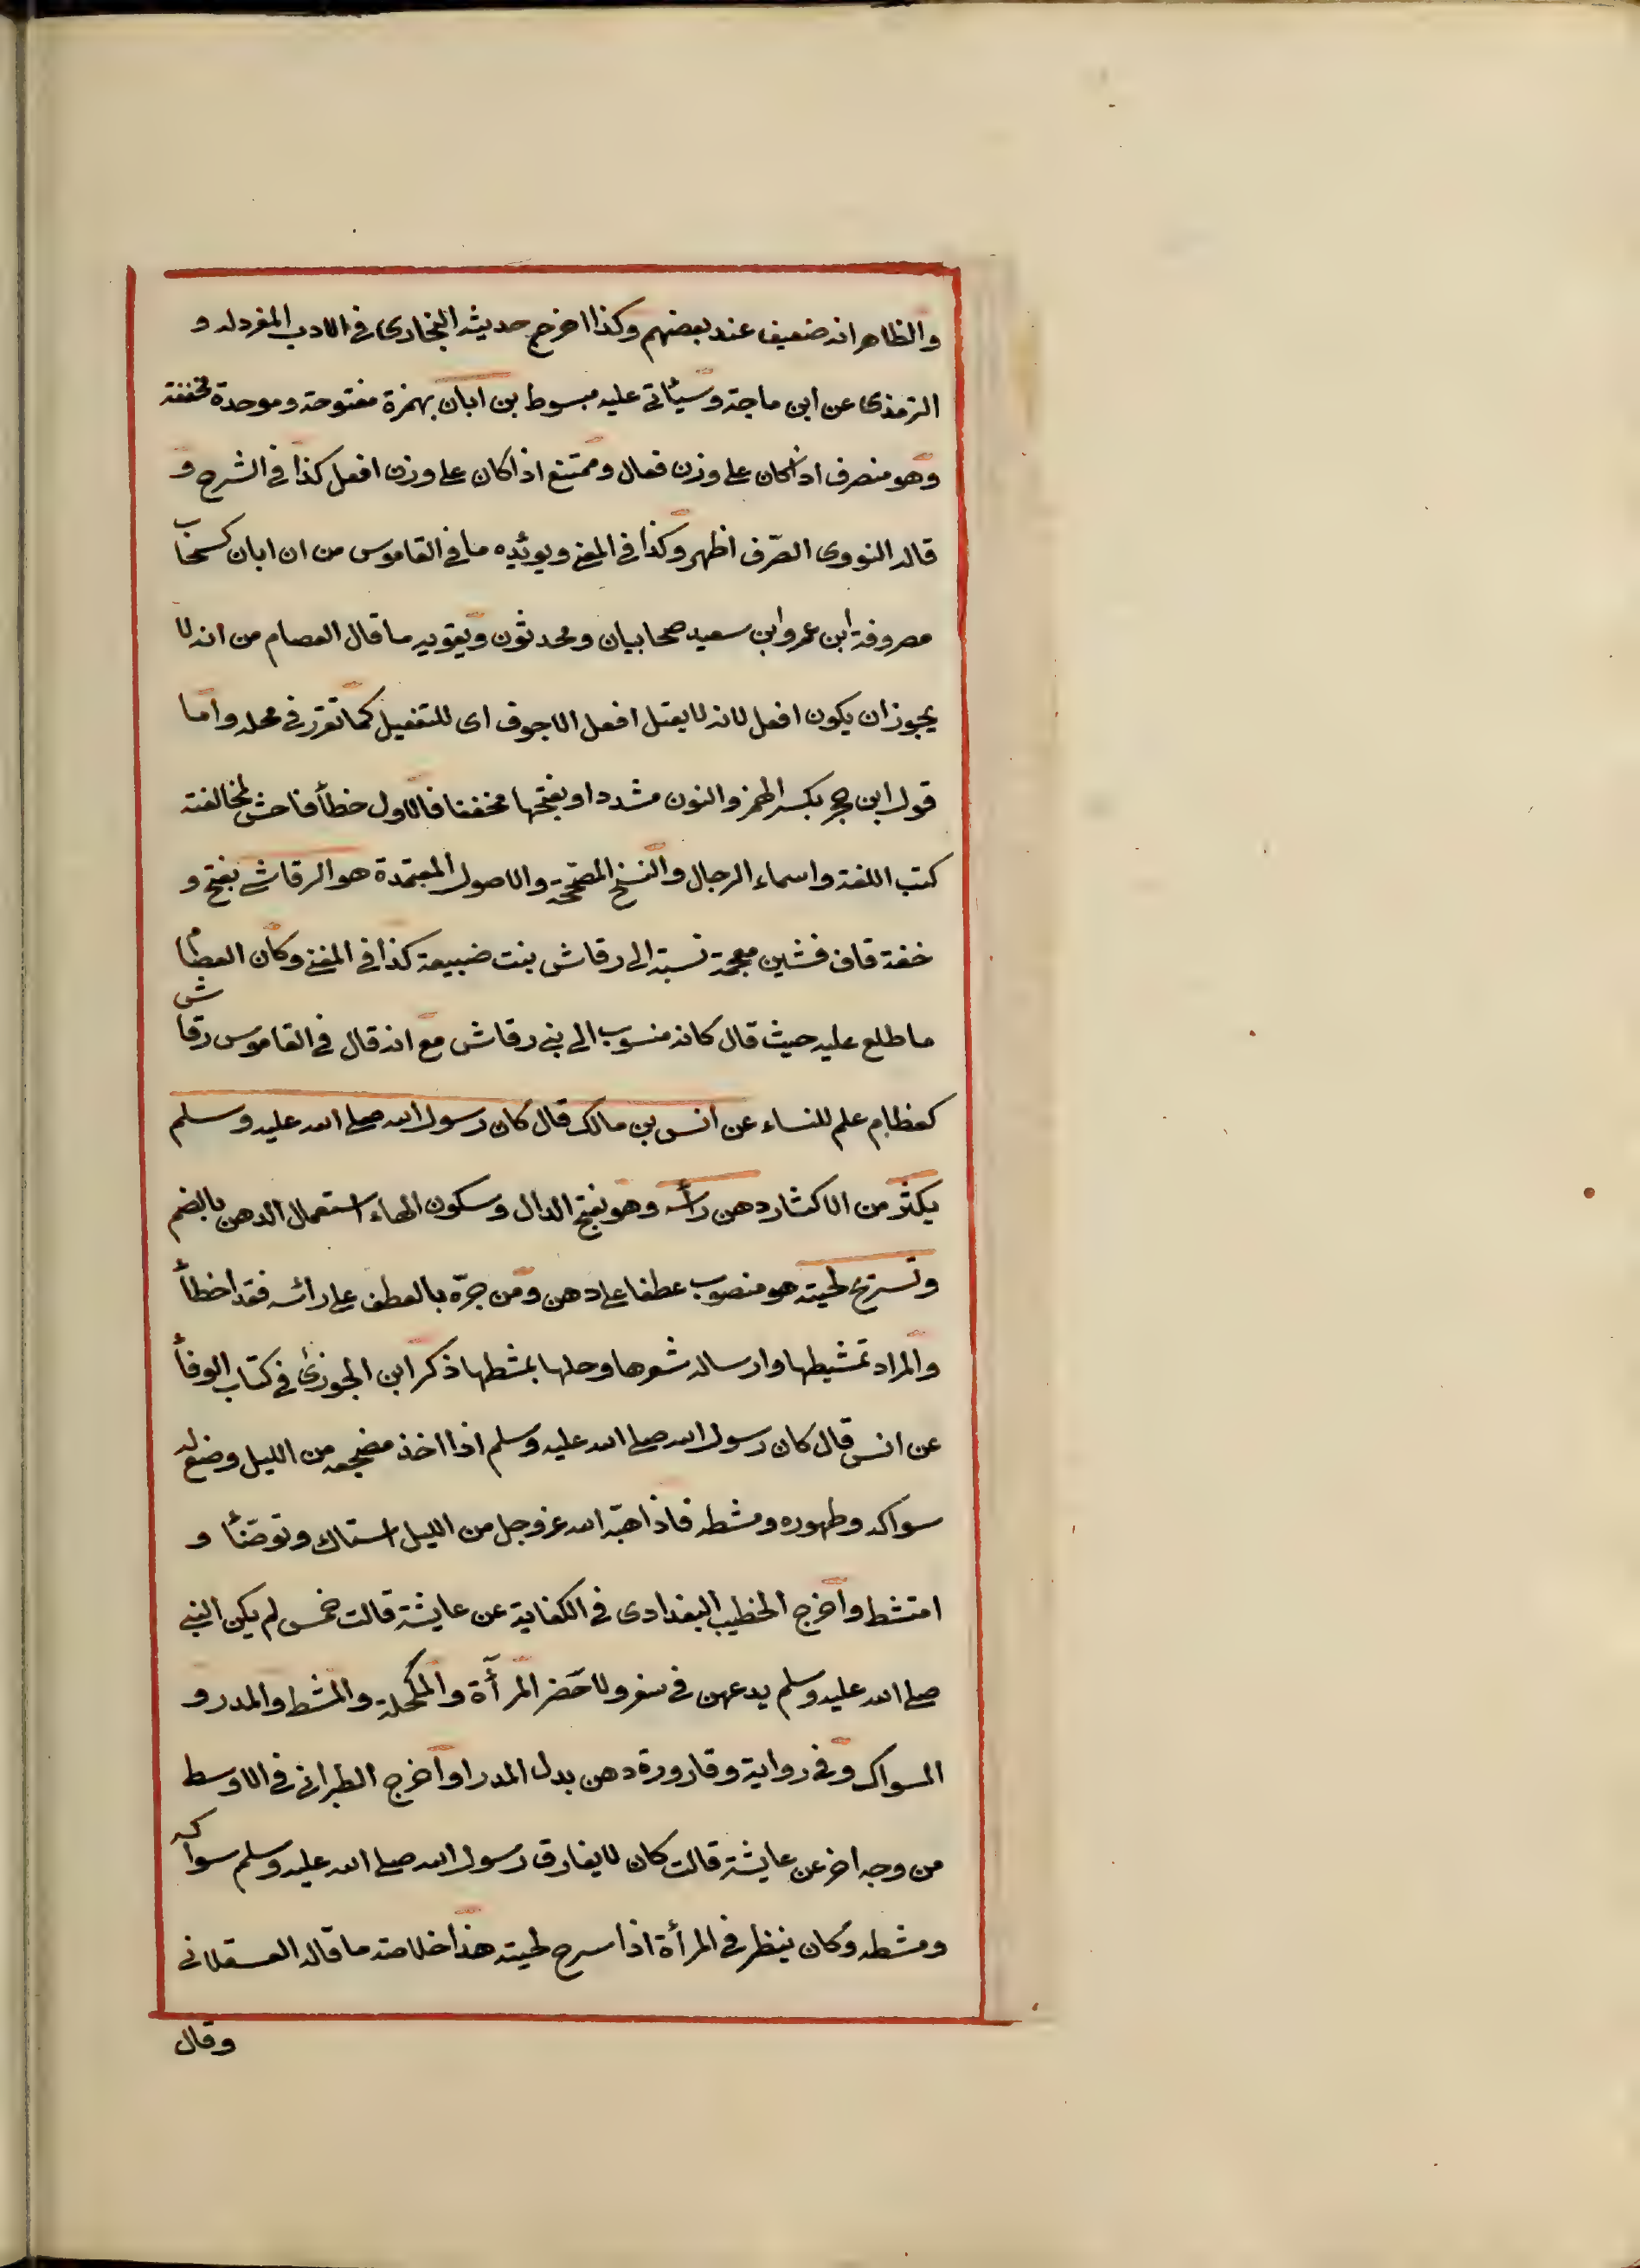 والظاهر انه ضعيف عند بعضهم وكذا اخرج حديثه البخارى فى الادب المفرد له و
الترمذى عن ابن ماجة وسيأتى عليه مبسوط بن ابان بهمزة مفتوحة وموحدة مخففة
وهو منصرف اذا كان على وزن فعال وممتنع اذا كان على وزن افعل كذا فى الشرح و
قال النووى الصّرف اظهر وكذا فى المغنى ويوئيده ما فى القاموس من ان ابان كسحاب
مصروفة ابن عمرو ابن سعيد صحابيان ومحدثون ويقويه ما قال العصام من انه لا
يجوز ان يكون افعل لانه لا يعتل افعل الاجوف اى للتفضيل كما تقرّر فى محله واما
قول ابن حجر بكسر الهمز والنون مشددا او بفتحها مخففا فالاول خطأ فاحش لمخالفته
كتب اللغة واسماء الرجال والنسخ المصحّحة والاصول المعتمدة هو الرقاشى بفتح و
خفة قاف فشين معجمة نسبة الى رقاش بنت ضبيعة كذا فى المغنى وكان العصام ما
ما طلع عليه حيث قال كانه منسوب الى بنى رقاش مع انه قال فى القاموس رقاش
كعظام علم للنساء عن انس بن مالك قال كان رسول الله صلى الله عليه وسلم
يكثر من الاكثار دهن رأسه وهو بفتح الدال وسكون الهاء استعمال الدهن بالضم
وتسريح لحيته هو منصوب عطفا على دهن ومن جرّه بالعطف على رائسه فقد اخطأ
والمراد تمشيطها وارسال شعرها وحلها بمشطها ذكر ابن الجوزى فى كتاب الوفأ
عن انس قال كان رسول الله صلى الله عليه وسلم اذا اخذ مضجعه من الليل وضع له
سواكه وطهوره ومشطه فاذا هبّه الله عز وجل من الليل استاك وتوضّأ و
امتشط واخرج الخطيب البغدادى فى الكفاية عن عايشة قالت خمس لم يكن النبى
صلى الله عليه وسلم يدعهن فى سفر ولا حَضر المرآة والمكحلة والمشط والمدر و
المسواك وفى رواية وقارورة دهن بدل المدرا واخرج الطبرانى فى الاوسط
من وجه اخر عن عايشة قالت كان لا يفارق رسول الله صلى الله عليه وسلم سواكه
ومشطه وكان ينظر فى المرأة اذا سرح لحيته هذا خلاصة ما قاله العسقلانى
وقال